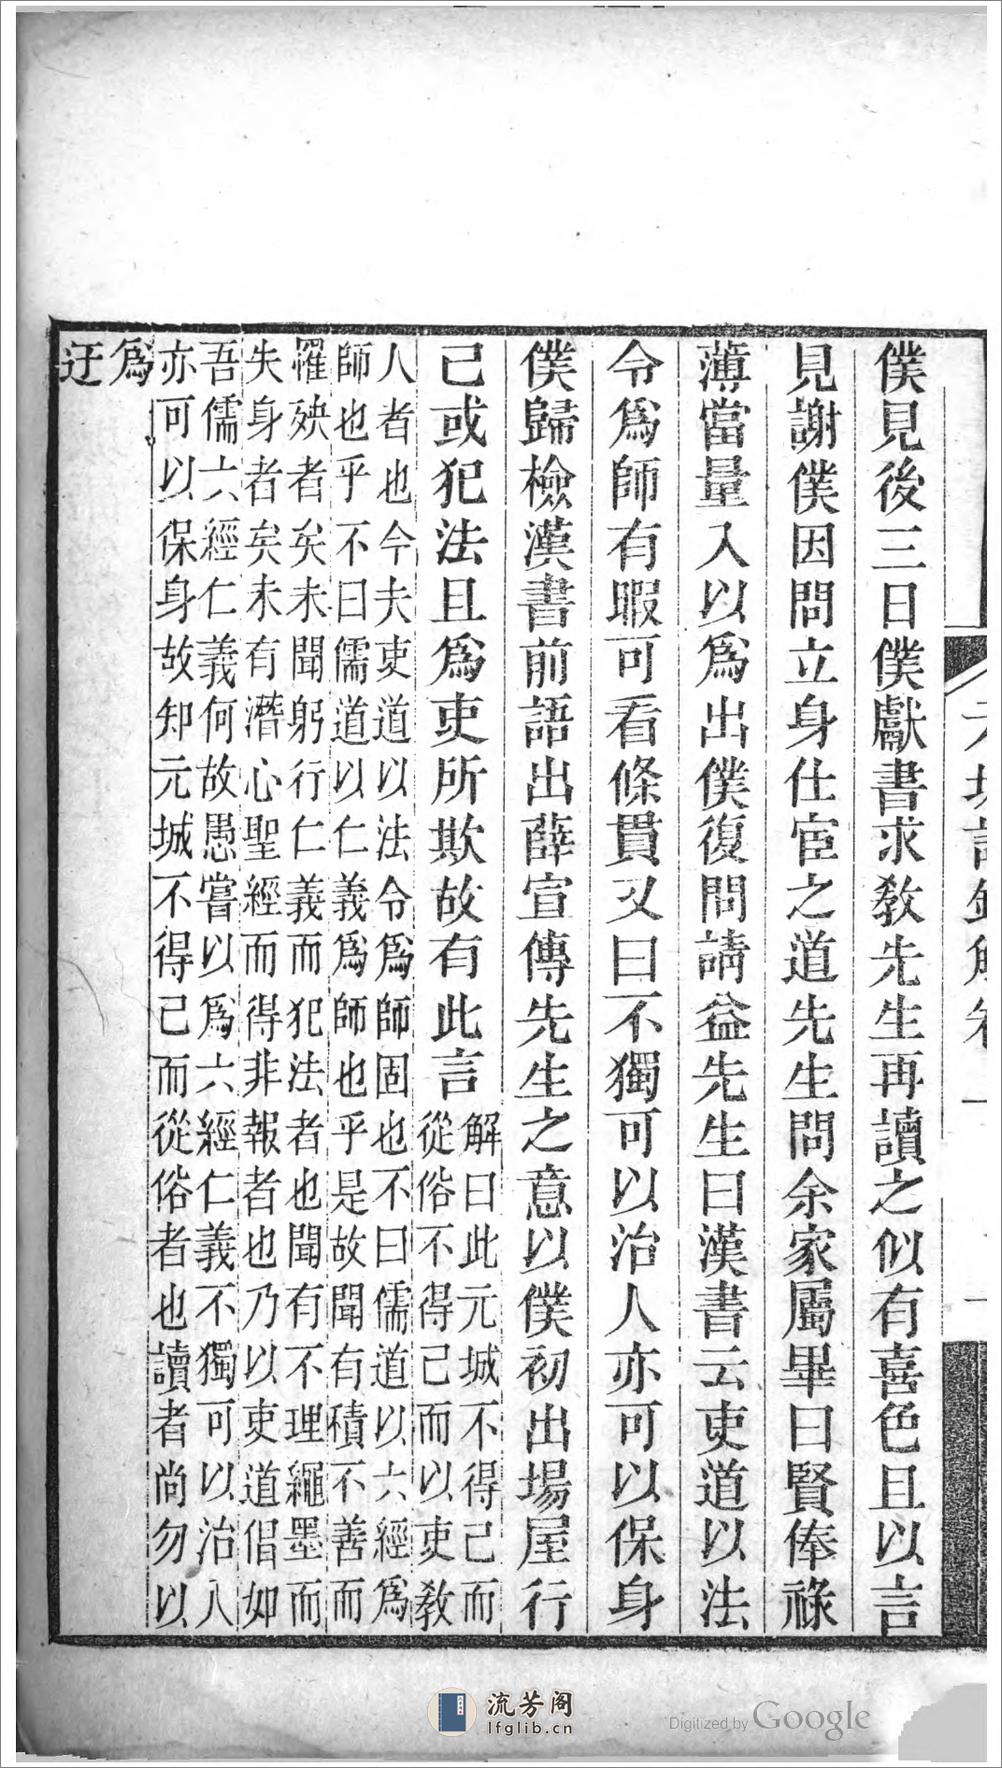 僕見後三日僕獻書求教先生再讀之似有喜色且以言
見謝僕因問立身仕宦之道先生問余家屬畢曰賢俸祿
薄當量入以爲出僕復問請益先生曰漢書云吏道以法
令爲師有暇可看條貫又曰不獨可以治人亦可以保身
僕歸檢漢書前語出薛宣傳先生之意以僕初出場屋行
己或犯法且爲吏所欺故有此言
解曰此元城不得已而
從俗不得已而以吏教
人者也今夫吏道以法令爲師固也不曰儒道以六經爲
師也乎不曰儒道以仁義爲師也乎是故聞有積不善而
罹殃者矣未聞躬行仁義而犯法者也聞有不理繩墨而
失身者矣未有潛心聖經而得非報者也乃以吏道倡如
吾儒六經仁義何故愚嘗以爲六經仁義不獨可以治人
亦可以保身故知元城不得已而從俗者也讀者尚勿以
爲
迂
流芳阁
lfglib.cn
Digitized by Google